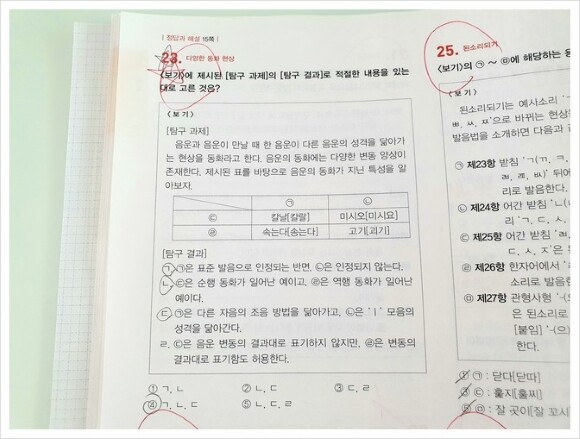 | 정답과 해설 15쪽 |
23. 다양한 동화 현상
<보기>에 제시된 [탐구 과제]의 [탐구 결과]로 적절한 내용을 있는
대로 고른 것은?
< 보 기 >
[탐구 과제]
음운과 음운이 만날 때 한 음운이 다른 음운의 성격을 닮아가
는 현상을 동화라고 한다. 음운의 동화에는 다양한 변동 양상이
존재한다. 제시된 표를 바탕으로 음운의 동화가 지닌 특성을 알
아보자.
㉠ ㉡
㉢ 칼날[칼랄] 미시오[미시요]
㉣ 속는다[송는다] 고기[괴기]
[탐구 결과]
ㄱ. ㉠은 표준 발음으로 인정되는 반면, ㉡은 인정되지 않는다.
ㄴ. ㉢은 순행 동화가 일어난 예이고, ㉣은 역행 동화가 일어난
예이다.
ㄷ. ㉠은 다른 자음의 조음 방법을 닮아가고, ㉡은 'ㅣ' 모음의
성격을 닮아간다.
ㄹ. ㉢은 음운 변동의 결과대로 표기하지 않지만, ㉣은 변동의
결과대로 표기함도 허용한다.
① ㄱ, ㄴ ② ㄴ, ㄷ ③ ㄷ, ㄹ
④ ㄱ, ㄴ, ㄷ ⑤ ㄴ, ㄷ, ㄹ
25. 된소리되기
<보기>의 ㉠ ~ ㉤에 해당하는
< 보 기 >
된소리되기는 예사소리
ㅃ, ㅆ, ㅉ'으로 바뀌는 현상
발음법을 소개하면 다음과
㉠ 제23항 받침 'ㄱ(ㄲ, ㅋ,
ㄿ, ㅄ)' 뒤에
리로 발음한다.
㉡ 제24항 어간 받침 'ㄴ(
리 'ㄱ, ㄷ, ㅅ,
㉢ 제25항 어간 받침
ㄷ, ㅅ, ㅈ'은
㉣ 제26항 한자어에서
소리로 발음
㉤ 제27항 관형사형
은 된소리로
[붙임] '-(으)
한다.
① ㉠ : 닫다[닫따]
③ ㉢ : 훑지[훌찌]
⑤ ㉤ : 잘 곳이[잘 꼬시]